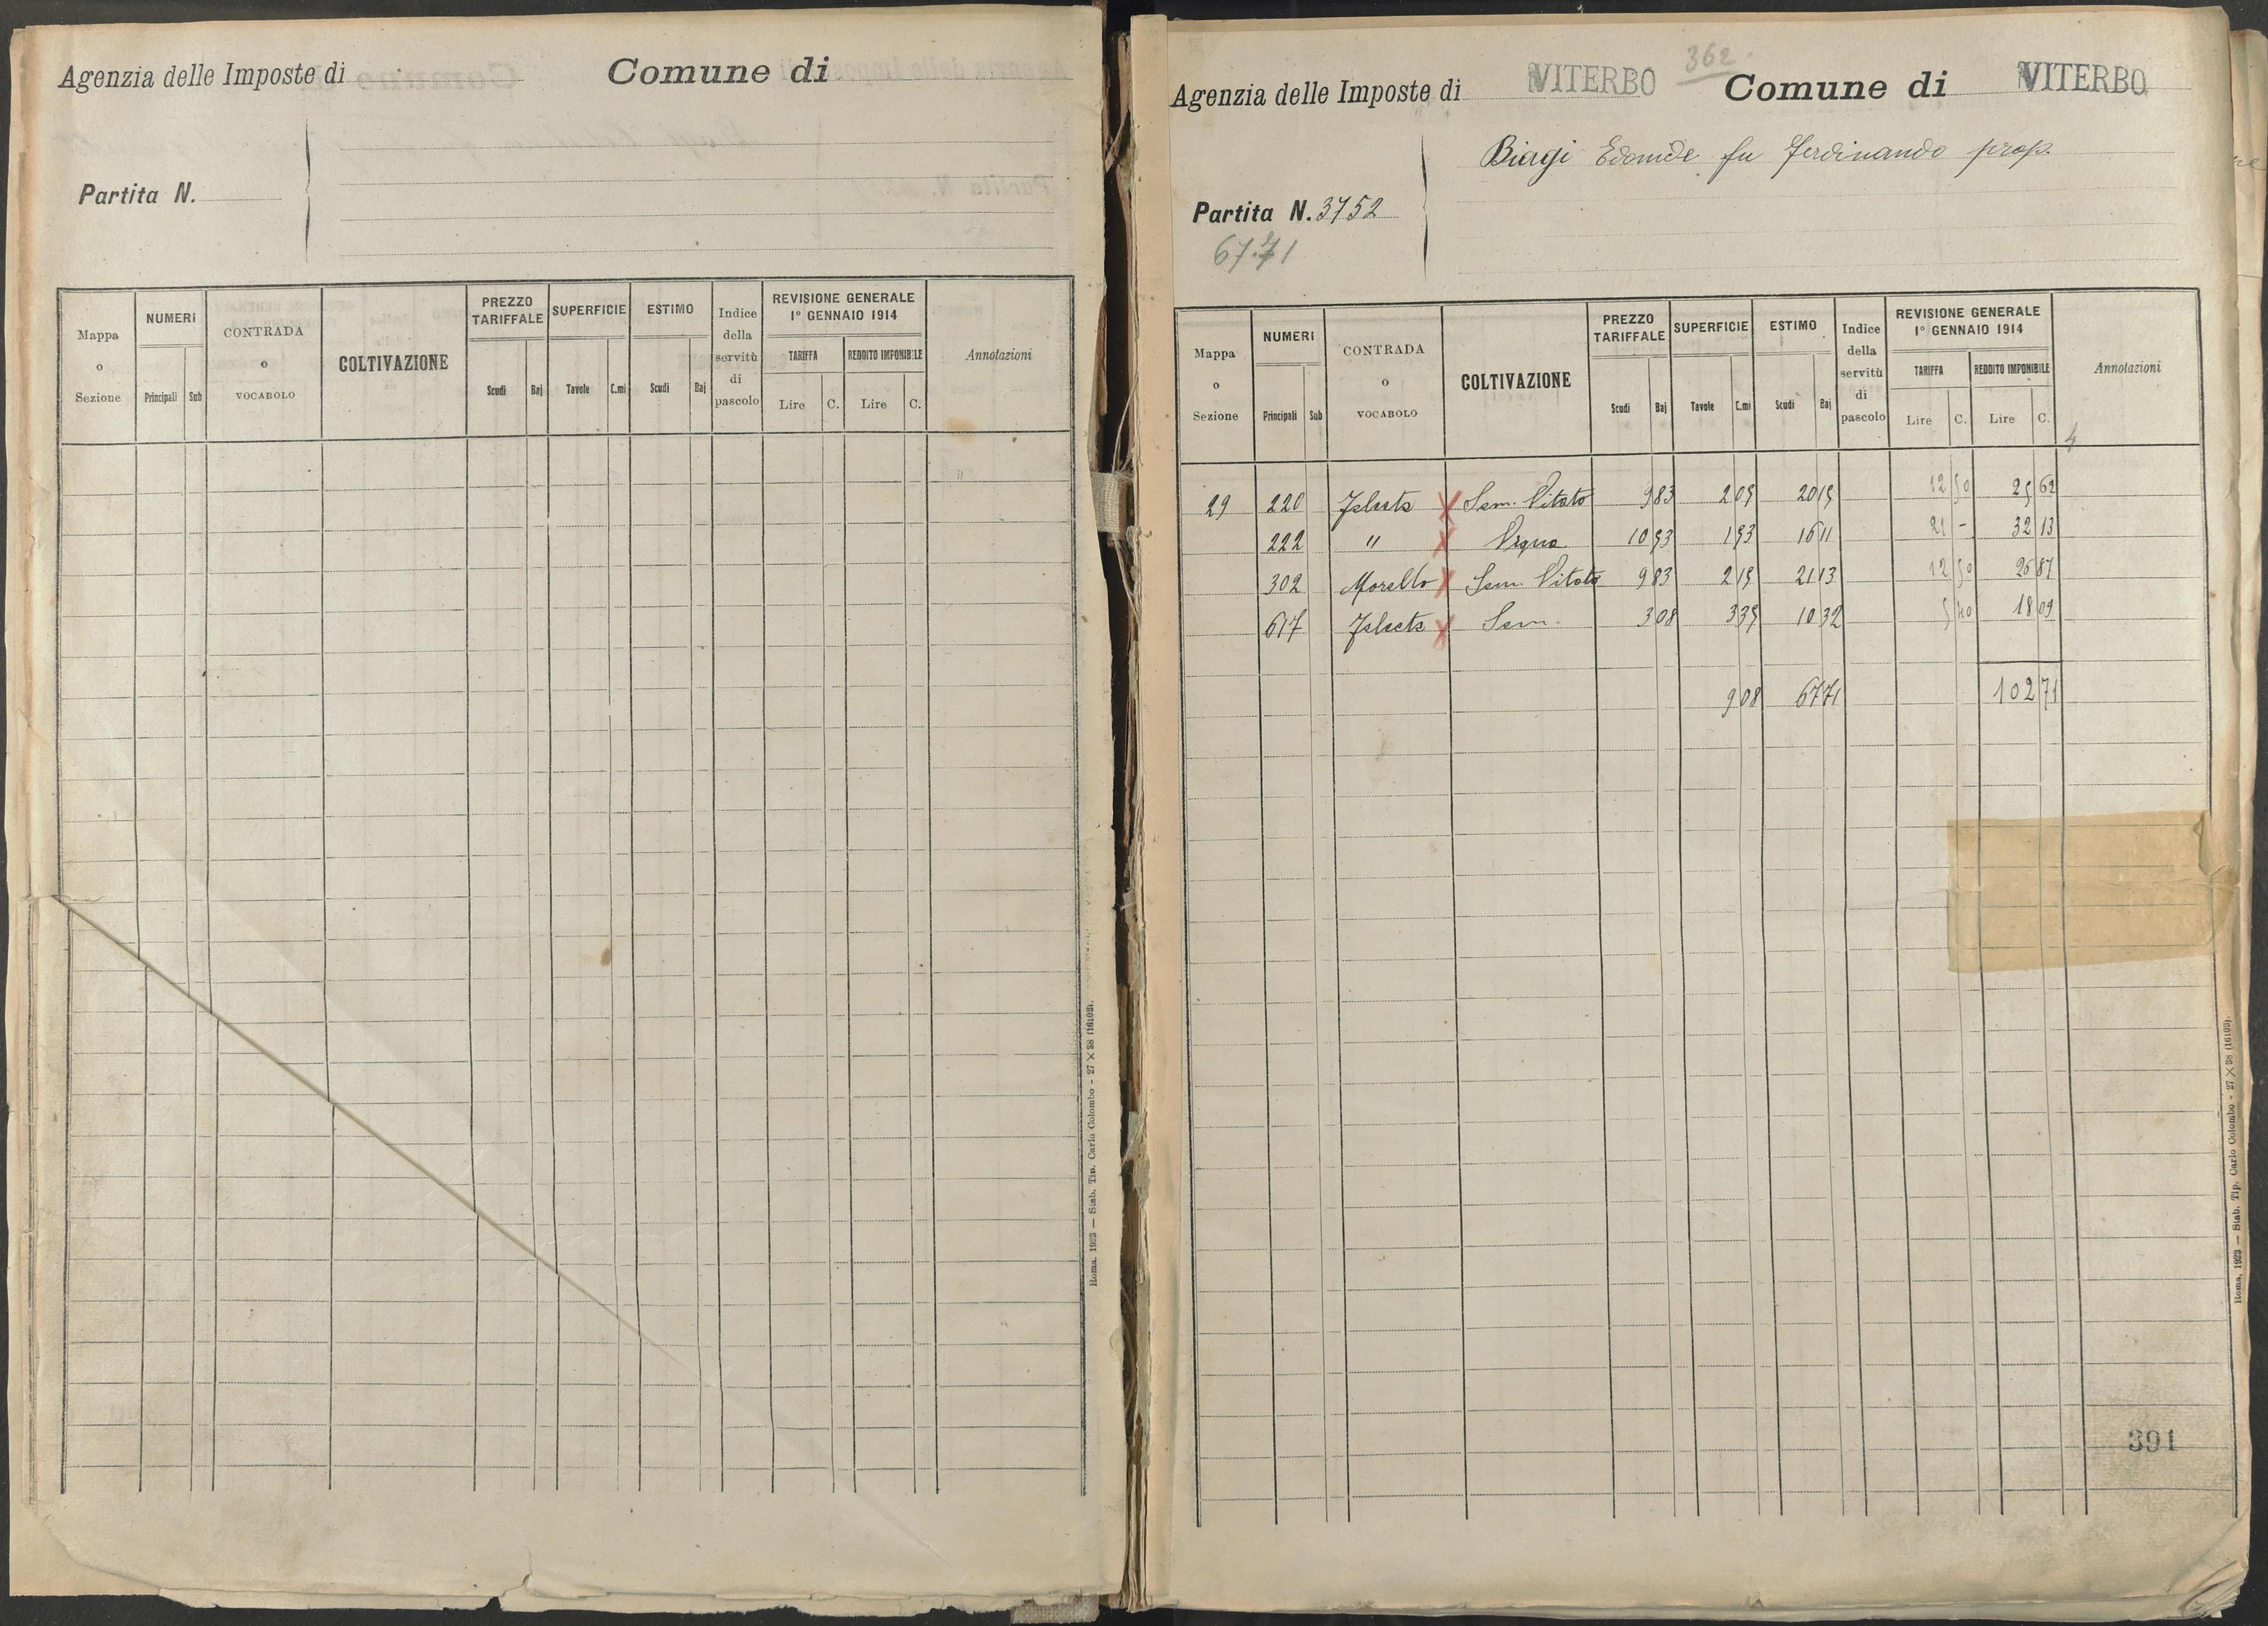 Agenzia delle Imposte di
Comune di
Partita N.
Mappa o Sezione
NUMERI
Principali
Sub
CONTRADA o VOCABOLO
COLTIVAZIONE
PREZZO TARIFFALE
Scudi
Baj
SUPERFICIE
Tavole
C.mi
ESTIMO
Scudi
Baj
Indice della servitù di pascolo
REVISIONE GENERALE
1° GENNAIO 1914
TARIFFA
REDDITO IMPONIBILE
Lire
C.
Lire
C.
Annotazioni
Roma, 1923 — Stab. Tip. Carlo Colombo - 27 × 38 (16103).
362
Agenzia delle Imposte di VITERBO
Comune di VITERBO
Biagi Edomide fu Ferdinando prop.
Partita N. 3752
67.71
Mappa o Sezione
NUMERI
Principali
Sub
CONTRADA o VOCABOLO
COLTIVAZIONE
PREZZO TARIFFALE
Scudi
Baj
SUPERFICIE
Tavole
C.mi
ESTIMO
Scudi
Baj
Indice della servitù di pascolo
REVISIONE GENERALE
1° GENNAIO 1914
TARIFFA
REDDITO IMPONIBILE
Lire
C.
Lire
C.
Annotazioni
4
29 220 X Sem. Vitato 9 83 2 05 20 15 12 50 25 62
222 " X Vigna 10 53 1 53 16 11 21 - 32 13
302 Morello X Sem. Vitato 9 83 2 15 21 13 12 50 26 87
617 X Sem. 3 08 3 35 10 32 5 40 18 09
9 08 67 71 102 71
391
Roma, 1923 — Stab. Tip. Carlo Colombo - 27 × 38 (16103).